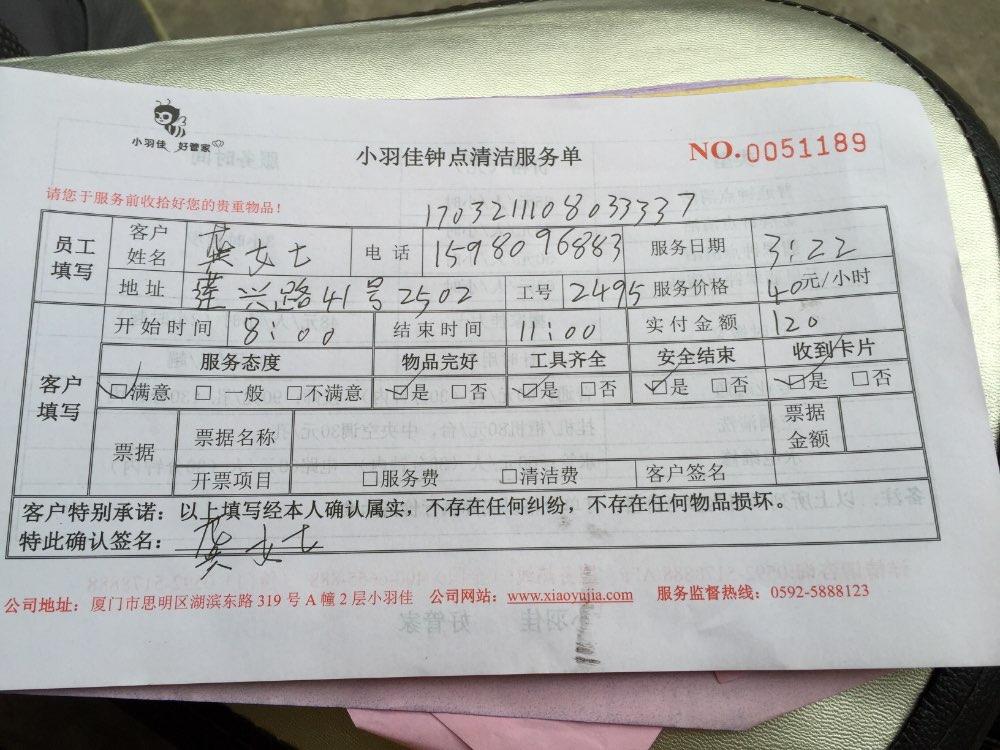 小羽佳 好管家
小羽佳钟点清洁服务单
NO.0051189
请您于服务前收拾好您的贵重物品！
1703211108033337
员工填写 客户姓名 龚女士 电话 1598096883 服务日期 3:22
地址 莲兴路41号2502 工号 2495 服务价格 40元/小时
客户填写 开始时间 8:00 结束时间 11:00 实付金额 120
服务态度 物品完好 工具齐全 安全结束 收到卡片
☑满意 □一般 □不满意 ☑是 □否 ☑是 □否 ☑是 □否 ☑是 □否
票据 票据名称 票据金额
开票项目 □服务费 □清洁费 客户签名
客户特别承诺：以上填写经本人确认属实，不存在任何纠纷，不存在任何物品损坏。
特此确认签名：龚女士
公司地址：厦门市思明区湖滨东路319号A幢2层小羽佳 公司网站：www.xiaoyujia.com 服务监督热线：0592-5888123